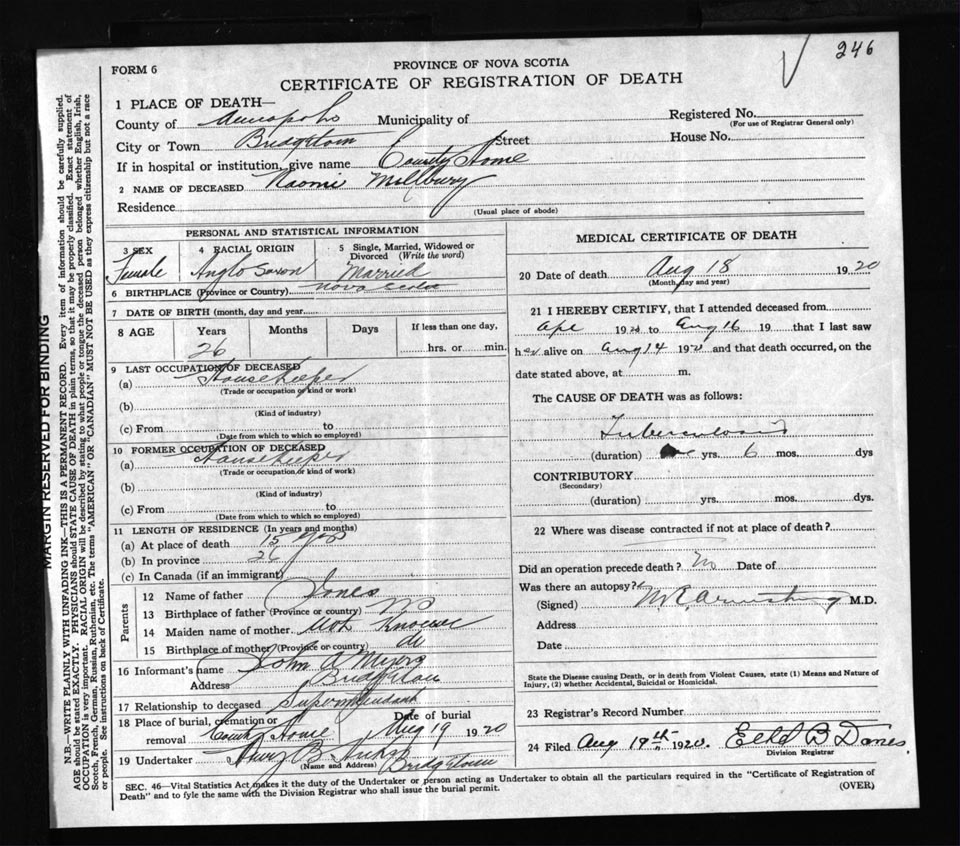 246
FORM 6
PROVINCE OF NOVA SCOTIA
CERTIFICATE OF REGISTRATION OF DEATH
MARGIN RESERVED FOR BINDING
N.B.—WRITE PLAINLY WITH UNFADING INK—THIS IS A PERMANENT RECORD. Every item of information should be carefully supplied.
AGE should be stated EXACTLY. PHYSICIANS should STATE CAUSE OF DEATH in plain terms, so that it may be properly classified. Exact statement of
OCCUPATION is very important. RACIAL ORIGIN will be described by stating to what people or tongue the deceased person belonged whether English, Irish,
Scotch, French, German, Russian, Ruthenian, etc. The terms "AMERICAN" OR "CANADIAN" MUST NOT BE USED as they express citizenship but not a race
or people. See instructions on back of Certificate.
1 PLACE OF DEATH—
County of Annapolis Municipality of Registered No.
(For use of Registrar General only)
City or Town Bridgetown Street House No.
If in hospital or institution, give name County Home
2 NAME OF DECEASED Naomi Millbury
Residence
(Usual place of abode)
PERSONAL AND STATISTICAL INFORMATION
3 SEX 4 RACIAL ORIGIN 5 Single, Married, Widowed or
Divorced (Write the word)
Female Anglo Saxon Married
6 BIRTHPLACE (Province or Country) Nova Scotia
7 DATE OF BIRTH (month, day and year)
8 AGE Years Months Days If less than one day,
26 hrs. or min.
9 LAST OCCUPATION OF DECEASED
(a) Housekeeper
(Trade or occupation or kind or work)
(b)
(Kind of industry)
(c) From to
(Date from which to which so employed)
10 FORMER OCCUPATION OF DECEASED
(a) Housekeeper
(Trade or occupation or kind of work)
(b)
(Kind of industry)
(c) From to
(Date from which to which so employed)
11 LENGTH OF RESIDENCE (In years and months)
(a) At place of death 15 yrs
(b) In province 26
(c) In Canada (if an immigrant)
Parents
12 Name of father Jones
13 Birthplace of father (Province or country) NS
14 Maiden name of mother Not Known
15 Birthplace of mother (Province or country) do
16 Informant's name John A Myers
Address Bridgetown
17 Relationship to deceased Superintendant
18 Place of burial, cremation or Date of burial
removal County Home Aug 19 1920
19 Undertaker B
(Name and Address) Bridgetown
MEDICAL CERTIFICATE OF DEATH
20 Date of death Aug 18 1920
(Month, day and year)
21 I HEREBY CERTIFY, that I attended deceased from
Apr 1920 to Aug 16 19 that I last saw
her alive on Aug 14 1920 and that death occurred, on the
date stated above, at m.
The CAUSE OF DEATH was as follows:
Tuberculosis
(duration) yrs. 6 mos. dys
CONTRIBUTORY
(Secondary)
(duration) yrs. mos. dys.
22 Where was disease contracted if not at place of death?
Did an operation precede death? No Date of
Was there an autopsy?
(Signed) Armstrong M.D.
Address
Date
State the Disease causing Death, or in death from Violent Causes, state (1) Means and Nature of
Injury, (2) whether Accidental, Suicidal or Homicidal.
23 Registrar's Record Number
24 Filed Aug 19th 1920. B
Division Registrar
SEC. 46—Vital Statistics Act makes it the duty of the Undertaker or person acting as Undertaker to obtain all the particulars required in the "Certificate of Registration of
Death" and to fyle the same with the Division Registrar who shall issue the burial permit. (OVER)